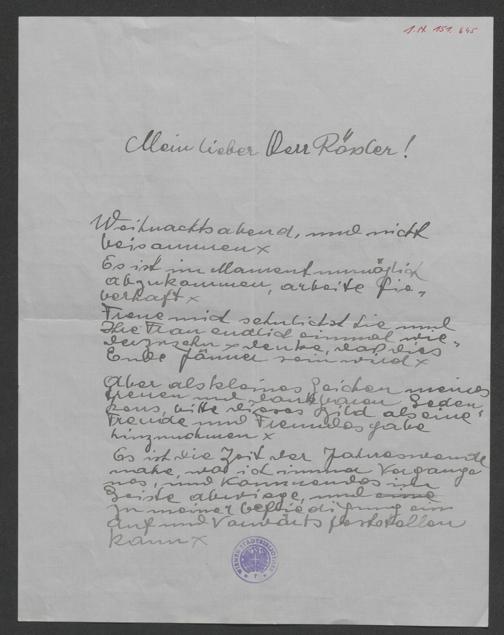 I.N. 151.645
Mein lieber Herr Rössler!
Weihnachtsabend, und nicht
beisammen x
Es ist im Moment unmöglich
abzukommen, arbeite fie-
berhaft x
Freue mich sehnlichst Sie und
Ihre Frau endlich einmal wie-
derzusehn x denke, daß dies
Ende Jänner sein wird x
Aber als kleines Zeichen meines
treuen und dankbaren Geden-
kens, bitte dieses Bild als eine
Freude und Freundesgabe
hinzunehmen x
Es ist die Zeit der Jahreswende
nahe, wo ich immer Vergange
nes, und Kommendes im
Geiste abwiege, und
zu meiner Befriedigung ein
Auf und Vorwärts feststellen
kann x
WIENER STADTBIBLIOTHEK